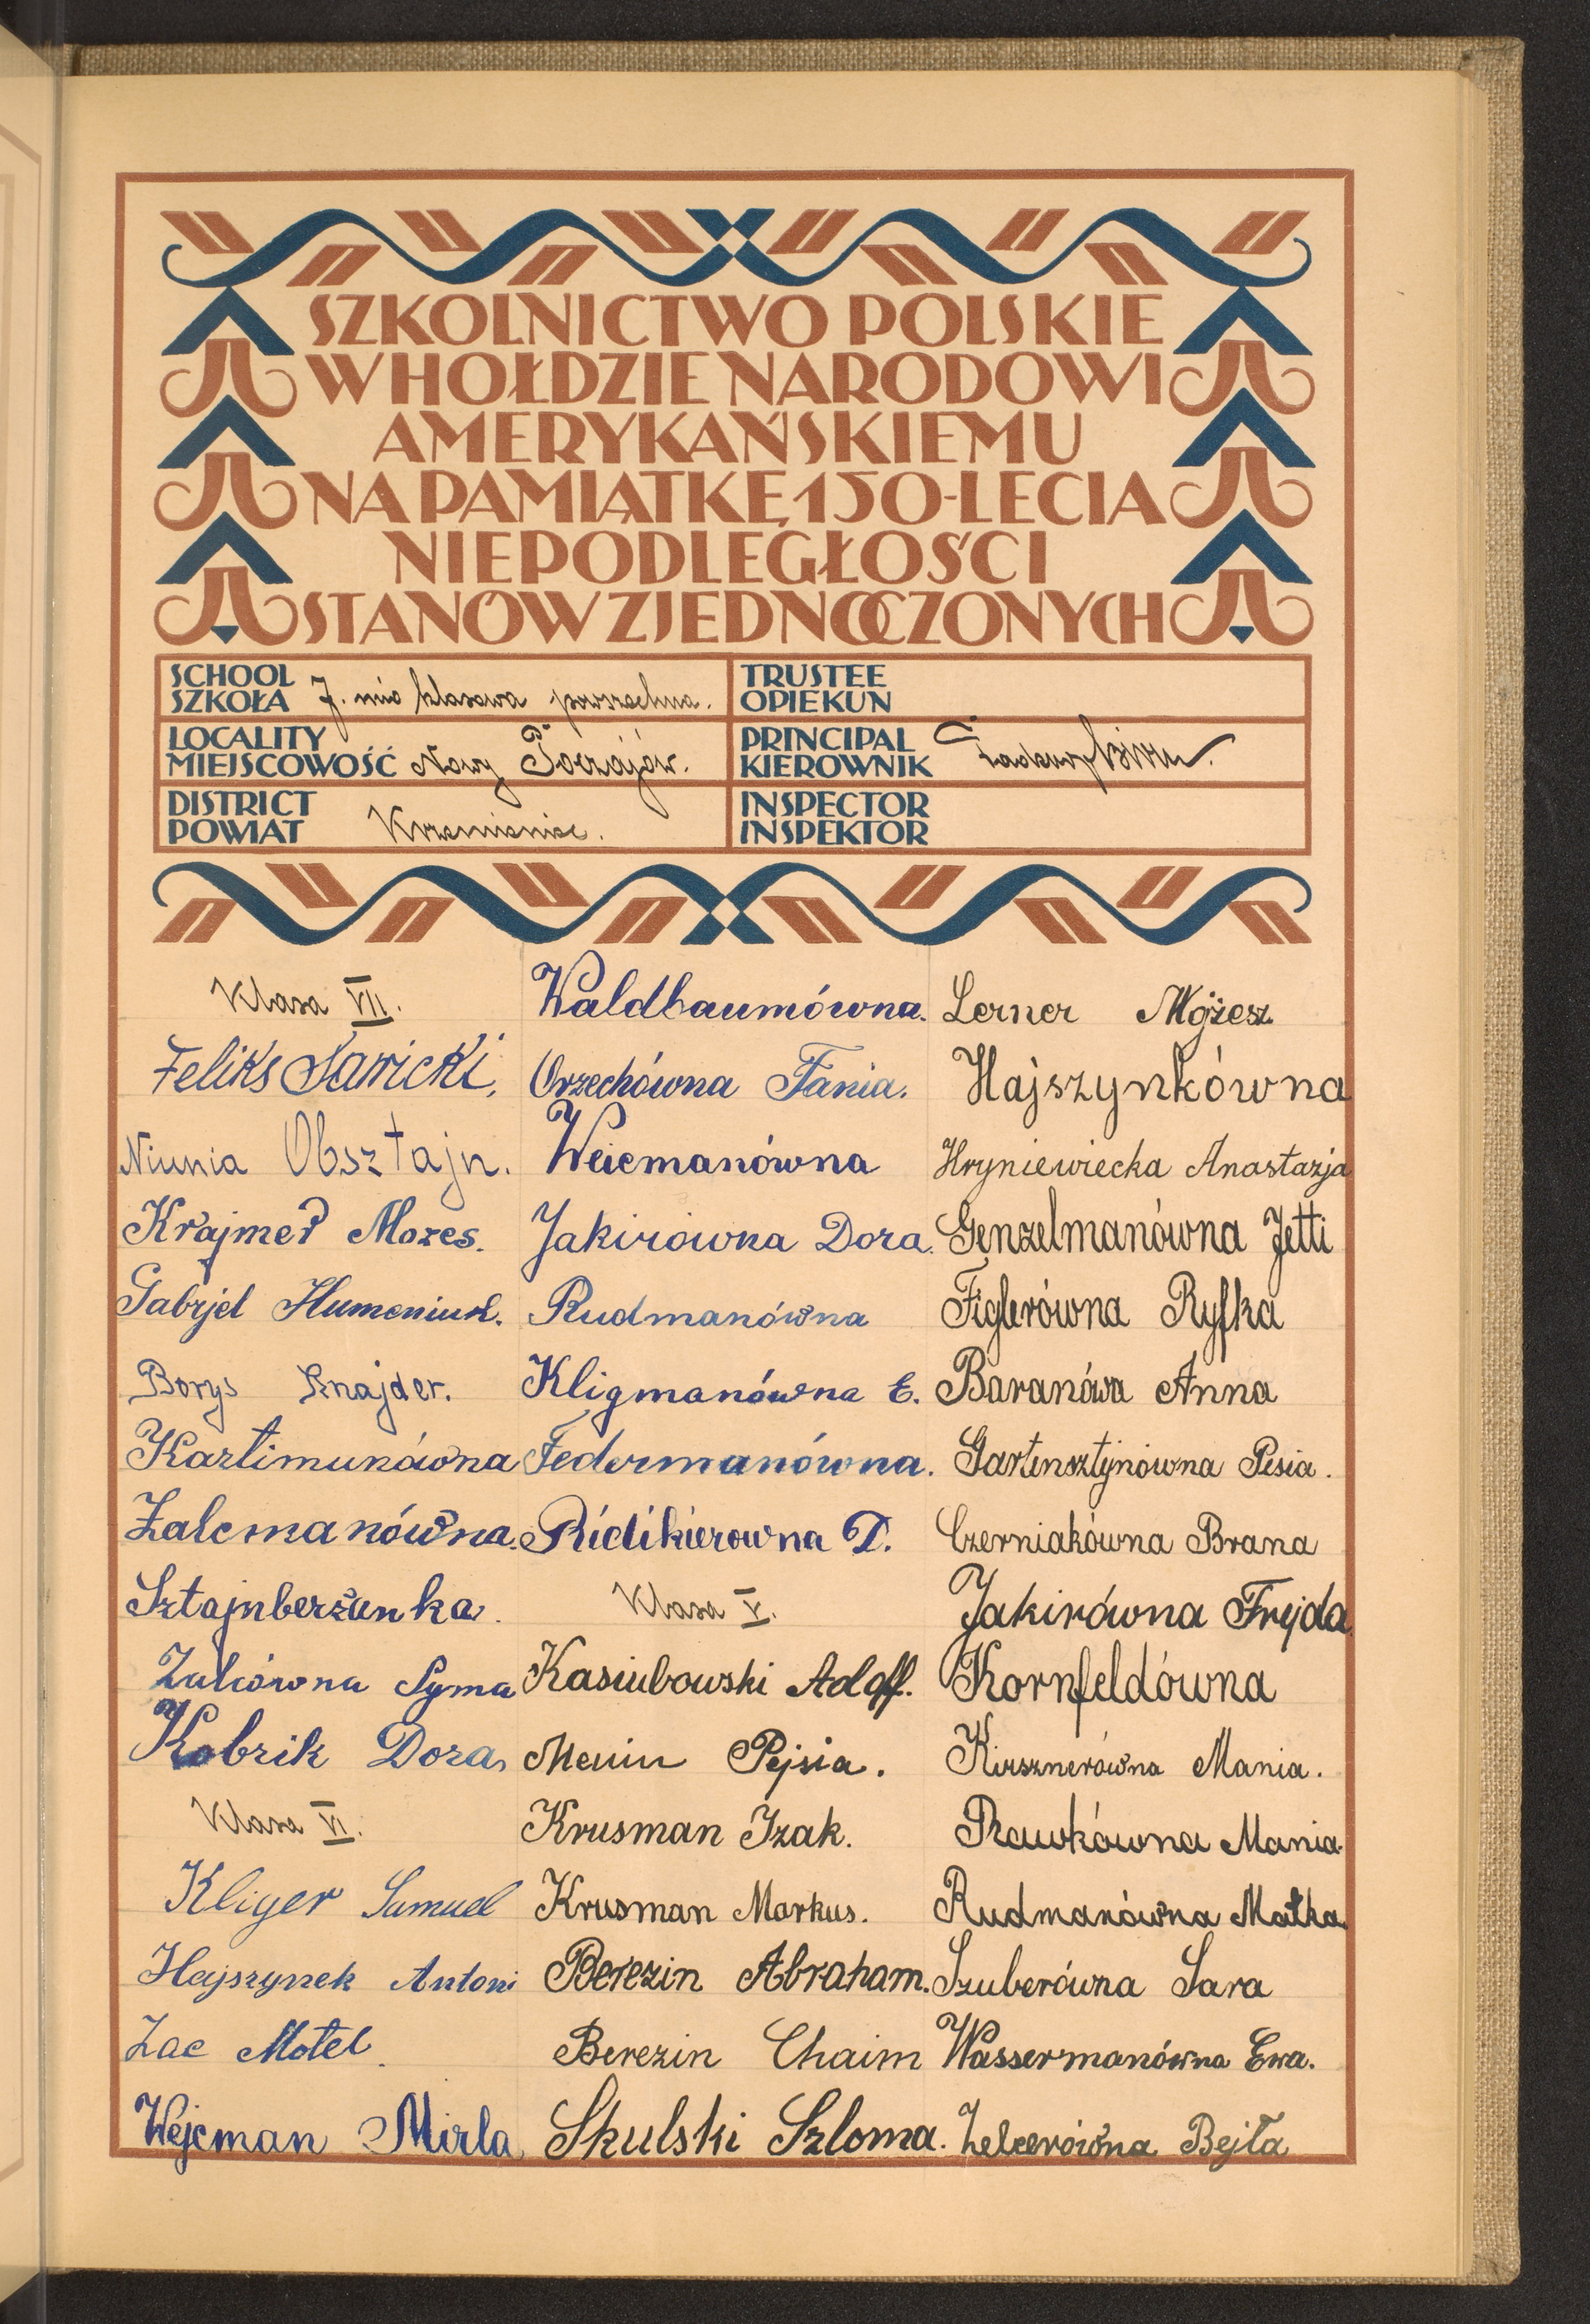 SZKOLNICTWO POLSKIE
W HOŁDZIE NARODOWI
AMERYKAŃSKIEMU
NA PAMIĄTKĘ 150-LECIA
NIEPODLEGŁOŚCI
STANÓW ZJEDNOCZONYCH
SCHOOL
SZKOŁA 7. mio klasowa powszechna.
LOCALITY
MIEJSCOWOŚĆ Nowy Poczajów.
DISTRICT
POWIAT Krzemieniec.
TRUSTEE
OPIEKUN
PRINCIPAL
KIEROWNIK
INSPECTOR
INSPEKTOR
Klasa VII.
Feliks Sawicki.
Niunia Obsztajn.
Krajmer Mozes.
Gabrjel Humeniuk.
Borys Sznajder.
Kartimunówna
Zalcmanówna.
Sztajnberżanka.
Zalcówna Syma
Kobrik Dora
Klasa VI.
Kliger Samuel
Hajszynek Antoni
Zac Motel.
Wejcman Mirla
Waldbaumówna.
Orzechówna Fania.
Weicmanówna
Jakirówna Dora.
Rudmanówna
Kligmanówna E.
Federmanówna.
Ridikierowna D.
Klasa V.
Kasiubowski Adolf.
Menin Pejsia.
Krusman Izak.
Krusman Markus.
Berezin Abraham.
Berezin Chaim
Skulski Szloma.
Lerner Mojżesz.
Hajszynkówna
Hryniewiecka Anastazja
Genzelmanówna Jetti
Figlerówna Ryfka
Baranówa Anna
Gartensztejnówna Pesia.
Czerniakówna Brana
Jakirówna Frejda.
Kornfeldówna
Kirsznerówna Mania.
Prawkówna Mania.
Rudmanówna Matka.
Szuberówna Sara
Wassermanówna Ewa.
Zelcerówna Bejła